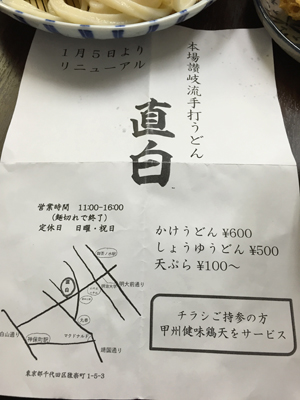 1月5日より
リニューアル
本場讃岐流手打うどん
直白
営業時間 11:00-16:00
(麺切れで終了)
定休日 日曜・祝日
かけうどん ¥600
しょうゆうどん ¥500
天ぷら ¥100~
チラシご持参の方
甲州健味鶏天をサービス
直白
明大前通り
白山通り
神保町駅
マクドナルド
靖国通り
東京都千代田区猿楽町1-5-3